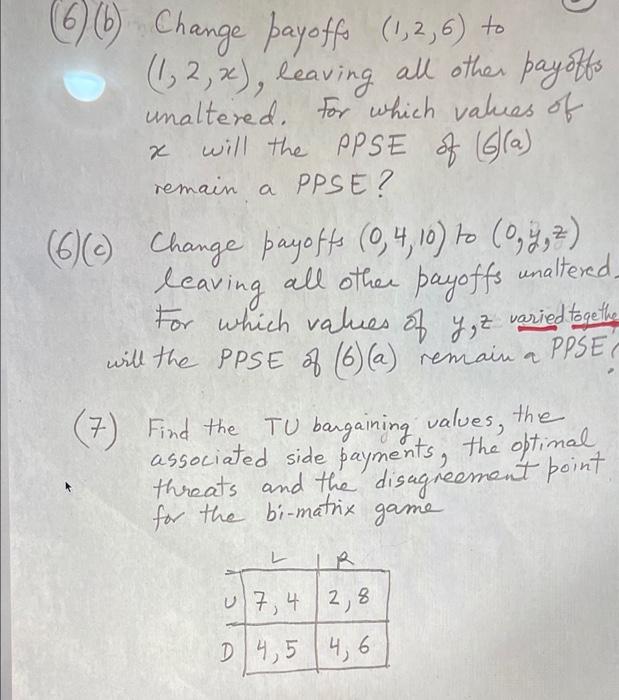 (6)(b) Change payoffs (1,2,6) to
(1,2,x), leaving all other payoffs
unaltered. For which values of
x will the PPSE of (6)(a)
remain a PPSE?
(6)(c) Change payoffs (0,4,10) to (0,y,z)
leaving all other payoffs unaltered.
For which values of y,z varied togethe
will the PPSE of (6)(a) remain a PPSE?
(7) Find the TU bargaining values, the
associated side payments, the optimal
threats and the disagreement point
for the bi-matrix game
L R
U 7,4 2,8
D 4,5 4,6